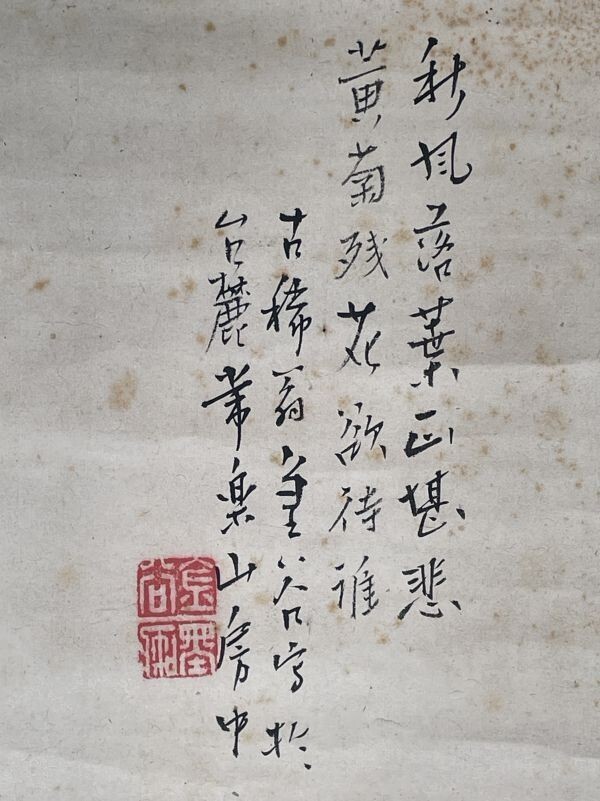 秋風落葉正堪悲
黄菊残花欲待誰
古稀翁谷写於
台麓常楽山房中